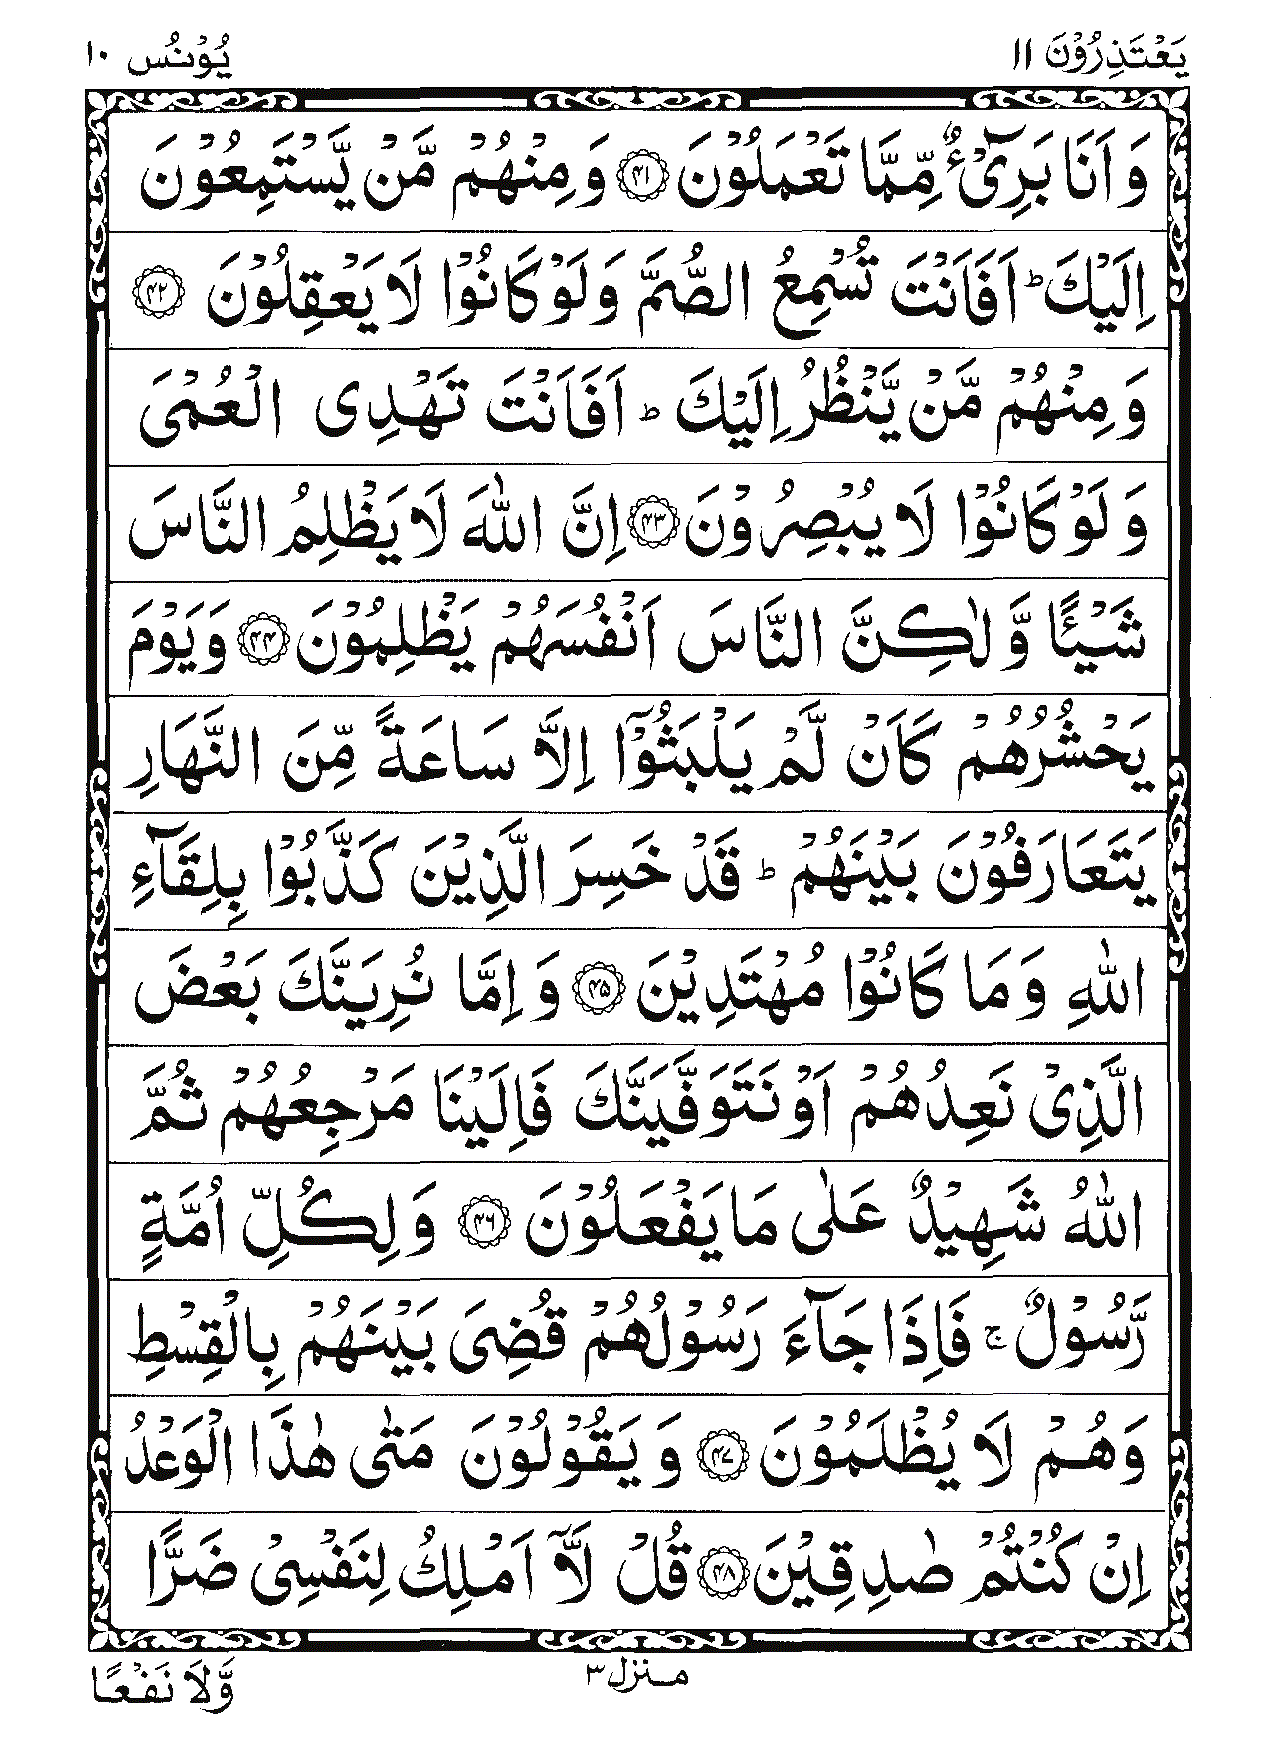 يَعْتَذِرُوْنَ ١١
يُوْنُس ١٠
وَ اَنَا بَرِیْٓءٌ مِّمَّا تَعْمَلُوْنَ ﴿۴۱﴾ وَ مِنْهُمْ مَّنْ يَّسْتَمِعُوْنَ
اِلَيْكَ ؕ اَفَاَنْتَ تُسْمِعُ الصُّمَّ وَ لَوْ كَانُوْا لَا يَعْقِلُوْنَ ﴿۴۲﴾
وَ مِنْهُمْ مَّنْ يَّنْظُرُ اِلَيْكَ ؕ اَفَاَنْتَ تَهْدِی الْعُمْیَ
وَ لَوْ كَانُوْا لَا يُبْصِرُوْنَ ﴿۴۳﴾ اِنَّ اللّٰهَ لَا يَظْلِمُ النَّاسَ
شَيْـًٔا وَّ لٰكِنَّ النَّاسَ اَنْفُسَهُمْ يَظْلِمُوْنَ ﴿۴۴﴾ وَ يَوْمَ
يَحْشُرُهُمْ كَاَنْ لَّمْ يَلْبَثُوْۤا اِلَّا سَاعَةً مِّنَ النَّهَارِ
يَتَعَارَفُوْنَ بَيْنَهُمْ ؕ قَدْ خَسِرَ الَّذِيْنَ كَذَّبُوْا بِلِقَآءِ
اللّٰهِ وَ مَا كَانُوْا مُهْتَدِيْنَ ﴿۴۵﴾ وَ اِمَّا نُرِيَنَّكَ بَعْضَ
الَّذِیْ نَعِدُهُمْ اَوْ نَتَوَفَّيَنَّكَ فَاِلَيْنَا مَرْجِعُهُمْ ثُمَّ
اللّٰهُ شَهِيْدٌ عَلٰی مَا يَفْعَلُوْنَ ﴿۴۶﴾ وَ لِكُلِّ اُمَّةٍ
رَّسُوْلٌ ۚ فَاِذَا جَآءَ رَسُوْلُهُمْ قُضِیَ بَيْنَهُمْ بِالْقِسْطِ
وَ هُمْ لَا يُظْلَمُوْنَ ﴿۴۷﴾ وَ يَقُوْلُوْنَ مَتٰی هٰذَا الْوَعْدُ
اِنْ كُنْتُمْ صٰدِقِيْنَ ﴿۴۸﴾ قُلْ لَّاۤ اَمْلِكُ لِنَفْسِیْ ضَرًّا
منزل ۳
وَّ لَا نَفْعًا